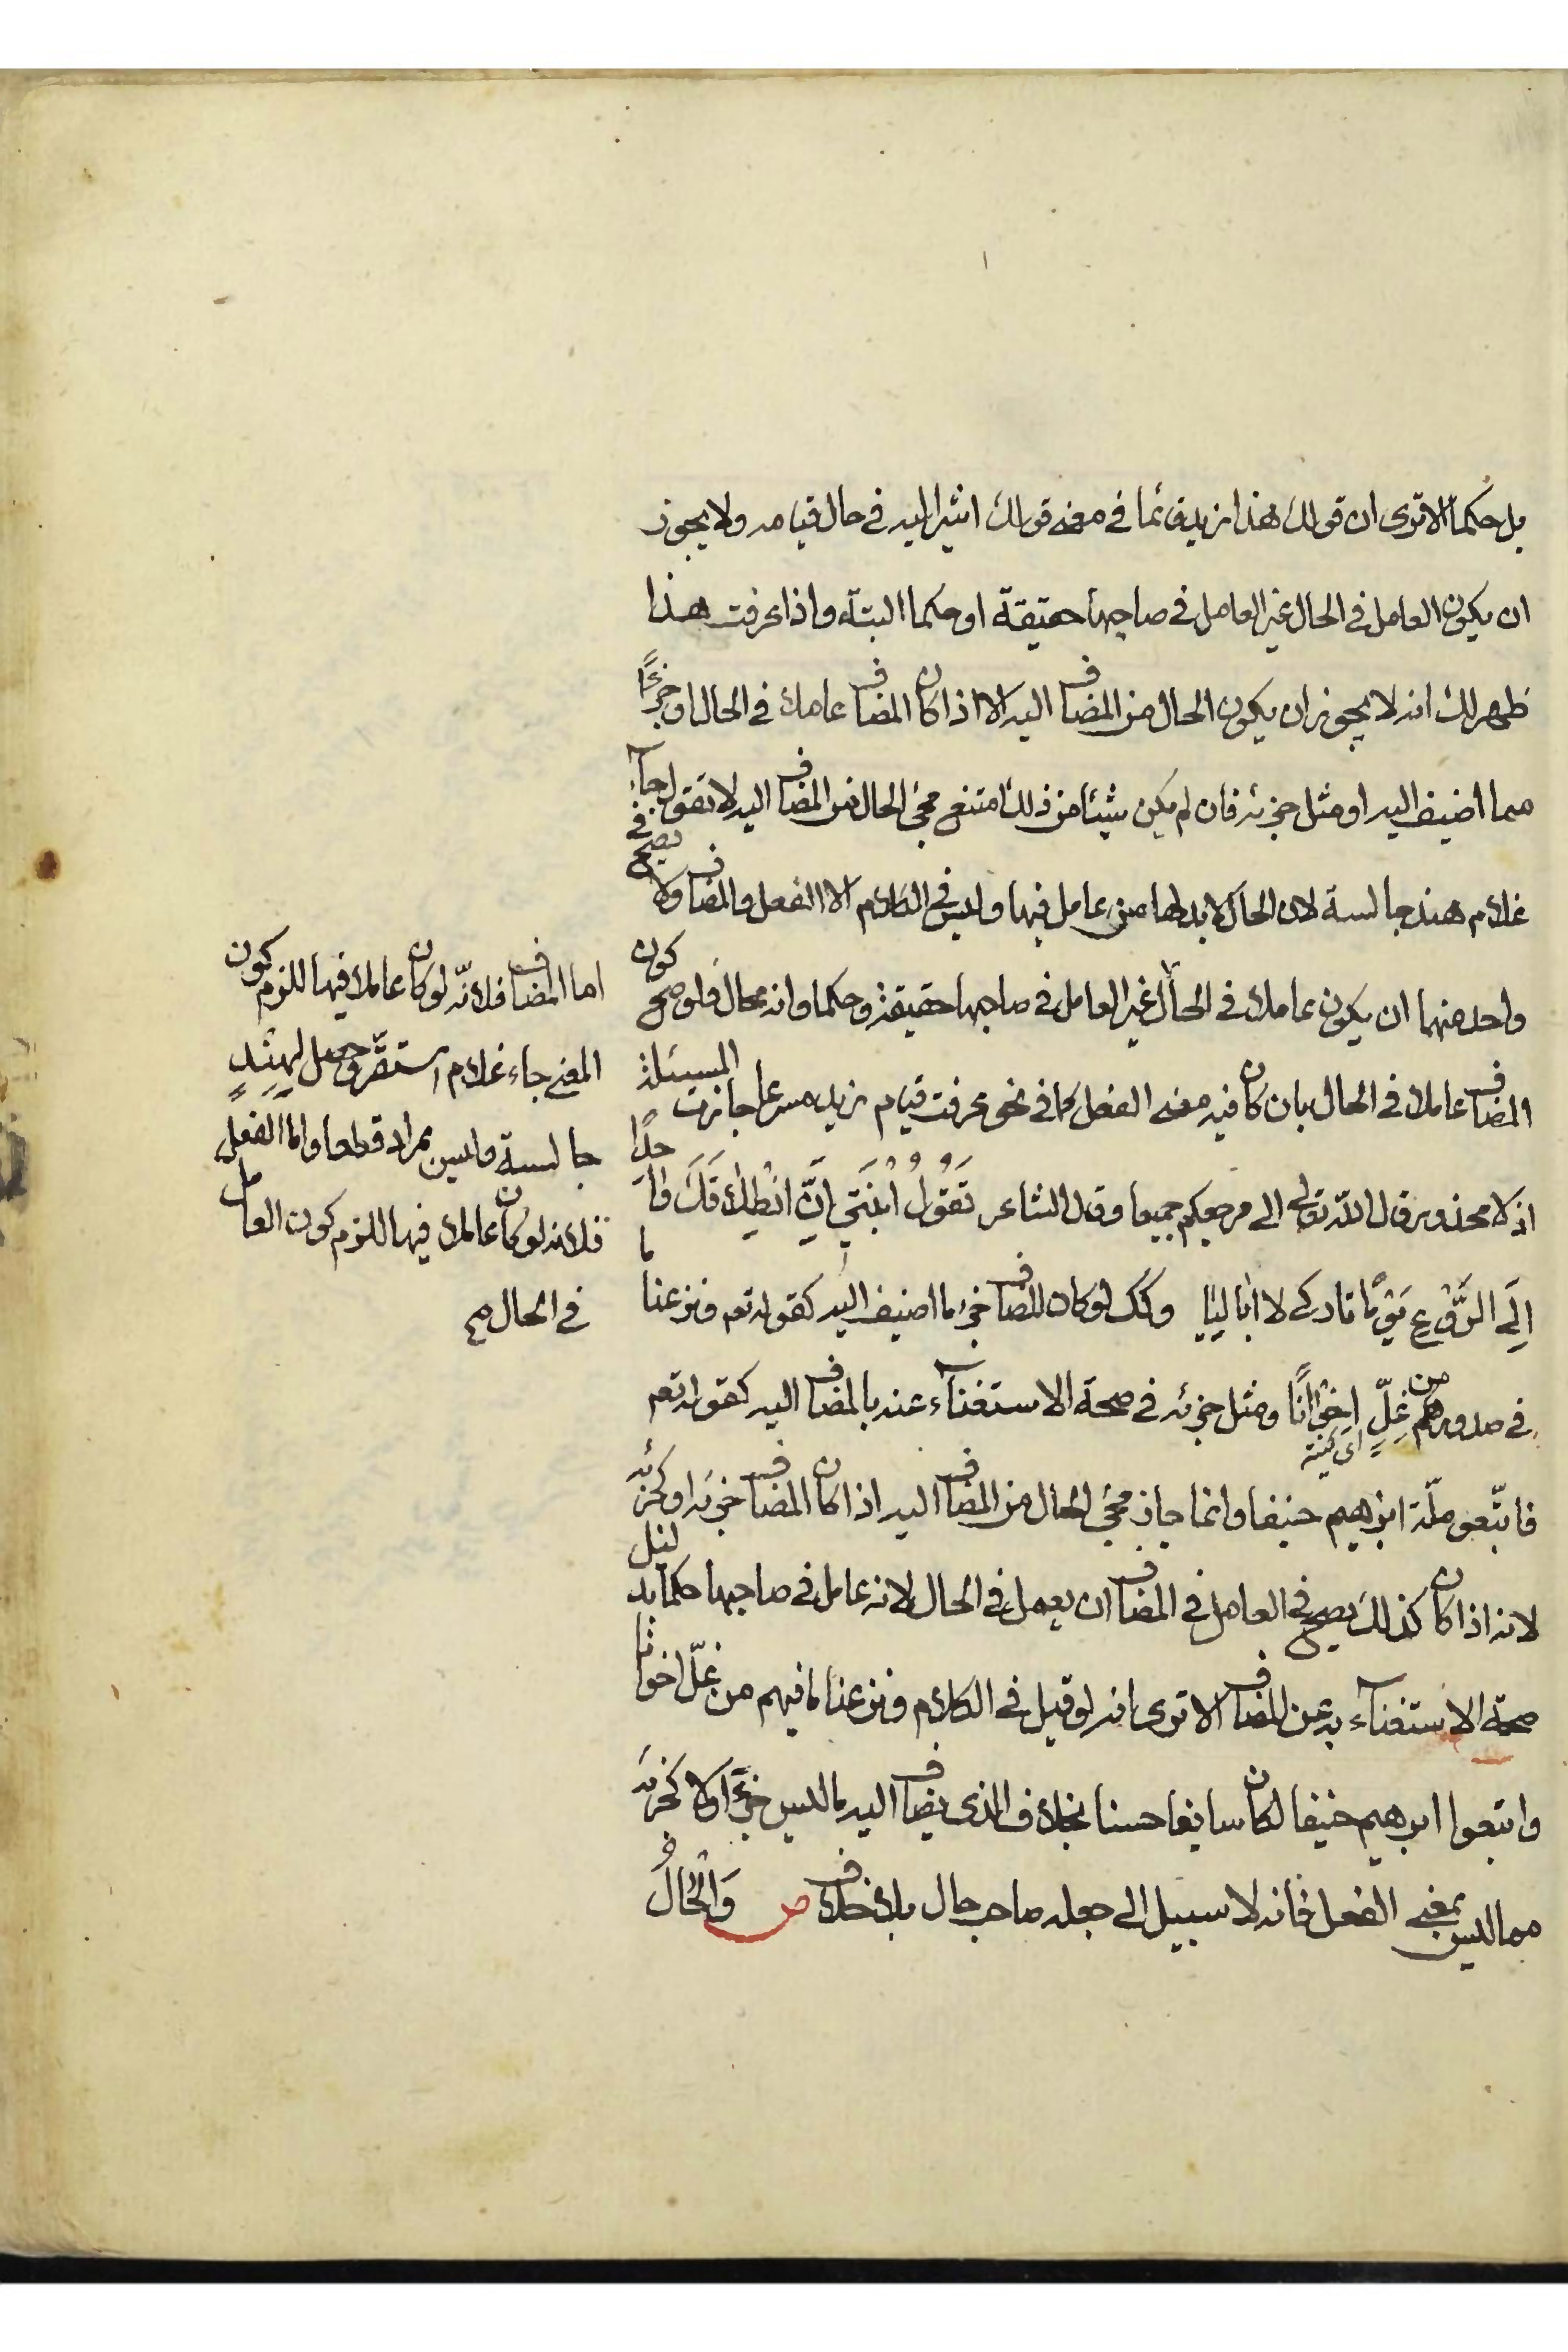 بل حكما الا ترى ان قولك هذا زيد قائما في معنى قولك اشير اليه في حال قيامه ولا يجوز
ان يكون العامل في الحال غير العامل في صاحبها حقيقة او حكما البتة واذا عرفت هذا
ظهر لك انه لا يجوز ان يكون الحال من المضاف اليه الا اذا كان المضاف عاملا في الحال او جزءًا
مما اضيف اليه او مثل جزئه فان لم يكن شيئا من ذلك امتنع مجئ الحال من المضاف اليه لا تقول جاء
غلام هند جالسة لان الحال لا بد لها من عامل فيها وليس في الكلام الا الفعل والمضاف ولا يصح في
واحد منهما ان يكون عاملا في الحال غير العامل في صاحبها حقيقة وحكما وانه محال فلو صح كون
المضاف عاملا في الحال بان كان فيه معنى الفعل كما في نحو عرفت قيام زيد مسرعا جازت المسئلة
اذ لا محذور قال الله تعالى الى مرجعكم جميعا وقال الشاعر تَقُولُ ابْنَتِي اِنَّ انْطِلاقَكَ واحدًا
اِلَى الرَّوْعِ يَوْمًا تاركي لا اباليا وكك لو كان المضاف جزء ما اضيف اليه كقوله تعم ونزعنا ما
في صدورهم من غِلٍّ اِخْوَانًا ومثل جزئه في صحة الاستغناء عنه بالمضاف اليه كقوله تعم
اى كينه
فاتّبعو ملّة ابرهيم حنيفا وانما جاز مجئ الحال من المضاف اليه اذا كان المضاف جزئه او كجزئه
لانه اذا كان كذلك يصح في العامل في المضاف ان يعمل في الحال لانه عامل في صاحبها حكما بدليل
صحة الاستغناء به عن المضاف الا ترى انه لو قيل في الكلام ونزعنا ما فيهم من غلّ اخوانا
واتبعوا ابرهيم حنيفا لكان سايغا حسنا بخلاف الذى يضاف اليه ما ليس جزءًا ولا كجزئه
مما ليس بمعنى الفعل فانه لا سبيل الى جعله صاحب حال بلا خلاف ص وَالْحَالُ
اما المضاف فلانّه لو كان عاملا فيها للزم كون
المعنى جاء غلام استقرّ وحصل لهِنْدٍ
جالسة وليس بمراد قطعا واما الفعل
فلانه لو كان عاملا فيها للزم كون العامل
في الحال صح